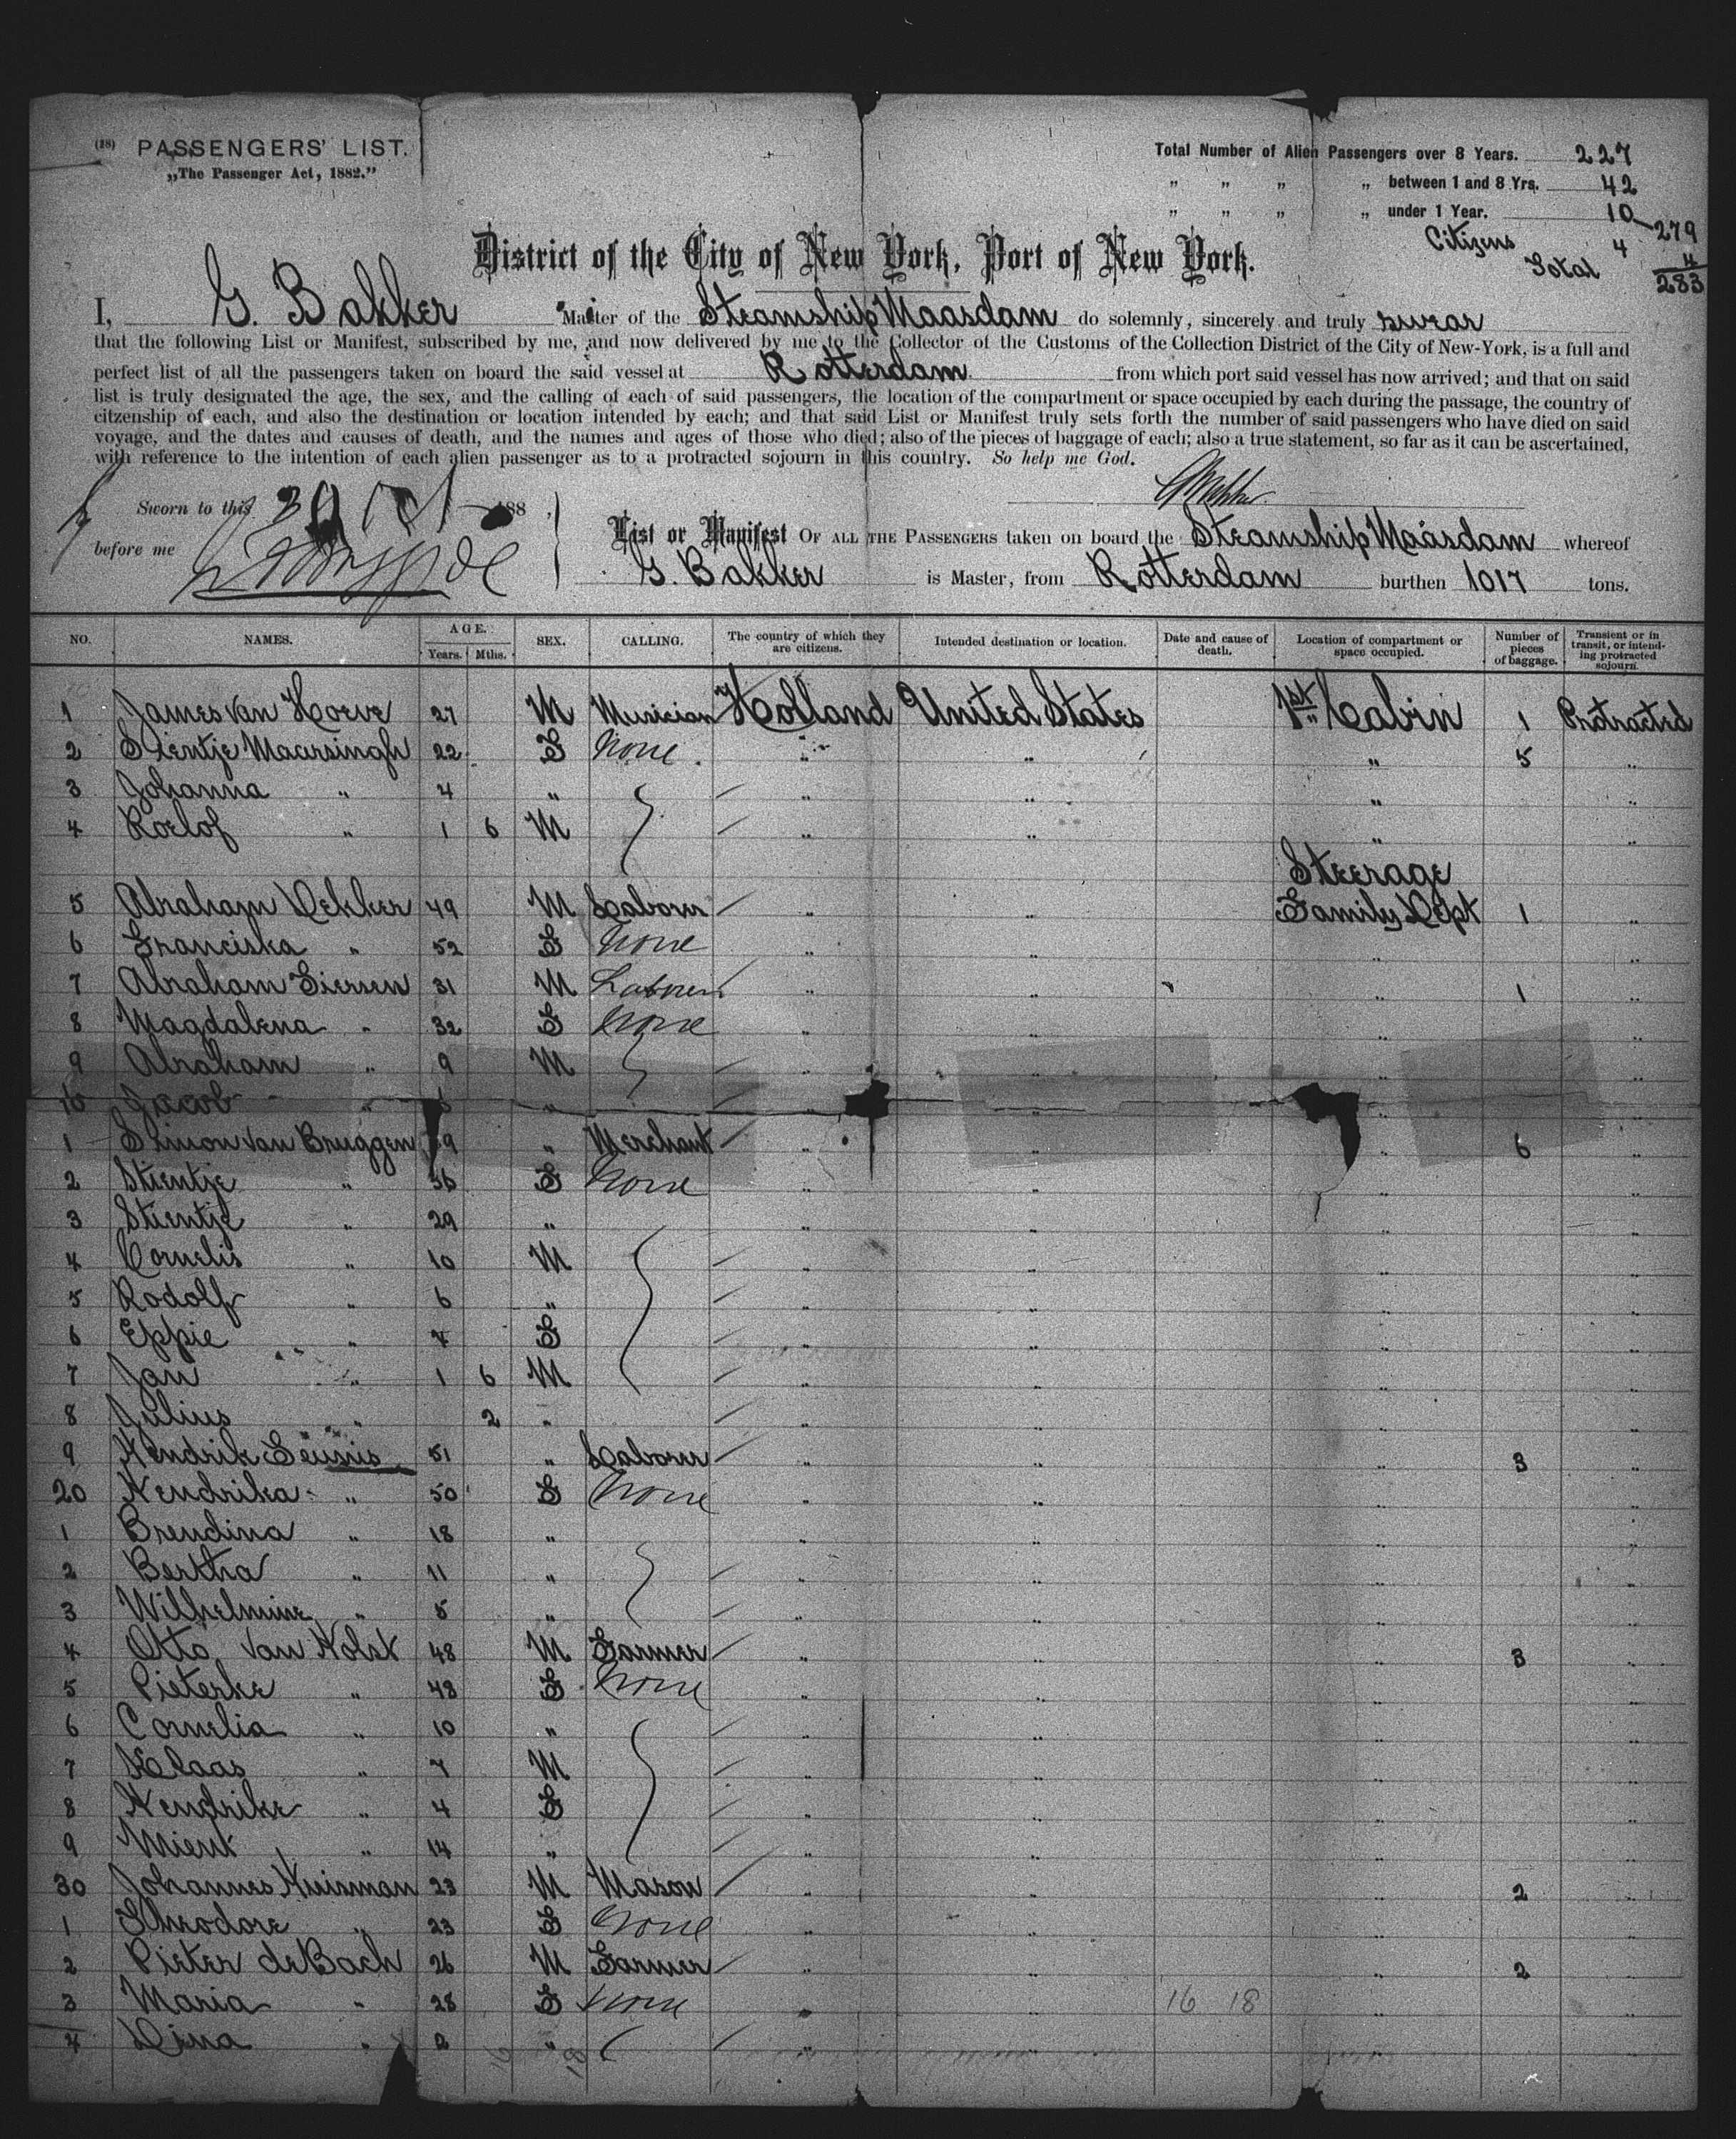 (18) PASSENGERS' LIST.
„The Passenger Act, 1882."
Total Number of Alien Passengers over 8 Years. 227
„ „ „ „ between 1 and 8 Yrs. 42
„ „ „ „ under 1 Year. 10 279
Citizens 4 4
Total 283
District of the City of New York, Port of New York.
I, G. Bakker Master of the Steamship Maasdam do solemnly, sincerely and truly swear
that the following List or Manifest, subscribed by me, and now delivered by me to the Collector of the Customs of the Collection District of the City of New-York, is a full and
perfect list of all the passengers taken on board the said vessel at Rotterdam from which port said vessel has now arrived; and that on said
list is truly designated the age, the sex, and the calling of each of said passengers, the location of the compartment or space occupied by each during the passage, the country of
citzenship of each, and also the destination or location intended by each; and that said List or Manifest truly sets forth the number of said passengers who have died on said
voyage, and the dates and causes of death, and the names and ages of those who died; also of the pieces of baggage of each; also a true statement, so far as it can be ascertained,
with reference to the intention of each alien passenger as to a protracted sojourn in this country. So help me God.
Sworn to this 188 ,
before me
List or Manifest OF ALL THE PASSENGERS taken on board the Steamship Maasdam whereof
G. Bakker is Master, from Rotterdam burthen 1017 tons.
NO. NAMES. AGE. Years. Mths. SEX. CALLING. The country of which they are citizens. Intended destination or location. Date and cause of death. Location of compartment or space occupied. Number of pieces of baggage. Transient or in transit, or intending protracted sojourn.
1 James Van Hoeve 27 M Musician Holland United States 1st Cabin 1 Protracted
2 Stientje Maarsingh 22 F None „ „ „ 5 „
3 Johanna „ 4 „ „ „ „ „
4 Roelof „ 1 6 M „ „ „ „
Steerage
5 Abraham Dekker 49 M Laborer „ „ Family Dept 1 „
6 Franciska „ 52 F None „ „ „ „
7 Abraham Siersen 31 M Laborer „ „ „ 1 „
8 Magdalena „ 32 F None „ „ „ „
9 Abraham „ 9 M „ „ „ „
10 Jacob „ „ „ „ „ „
1 Simon Van Bruggen 9 „ Merchant „ „ „ 6 „
2 Stientje „ 36 F None „ „ „ „
3 Stientje „ 29 „ „ „ „ „
4 Cornelis „ 10 M „ „ „ „
5 Rodolf „ 6 „ „ „ „ „
6 Eppie „ 4 F „ „ „ „
7 Jan „ 1 6 M „ „ „ „
8 Julius „ 2 „ „ „ „ „
9 Hendrik Seunis 51 „ Laborer „ „ „ 3 „
20 Hendrika „ 50 F None „ „ „ „
1 Brendina „ 18 „ „ „ „ „
2 Bertha „ 11 „ „ „ „ „
3 Wilhelmine „ 5 „ „ „ „ „
4 Otto Van Holst 48 M Farmer „ „ „ 3 „
5 Pieterke „ 48 F None „ „ „ „
6 Cornelia „ 10 „ „ „ „ „
7 Klaas „ 7 M „ „ „ „
8 Hendrike „ 4 F „ „ „ „
9 Mient „ 14 „ „ „ „ „
30 Johannes Huisman 23 M Mason „ „ „ 2 „
1 Theodore „ 23 F None „ „ „ „
2 Pieter de Bach 26 M Farmer „ „ „ 2 „
3 Maria „ 28 F None „ „ 16 18 „ „
4 Dina „ 2 „ „ „ „ „